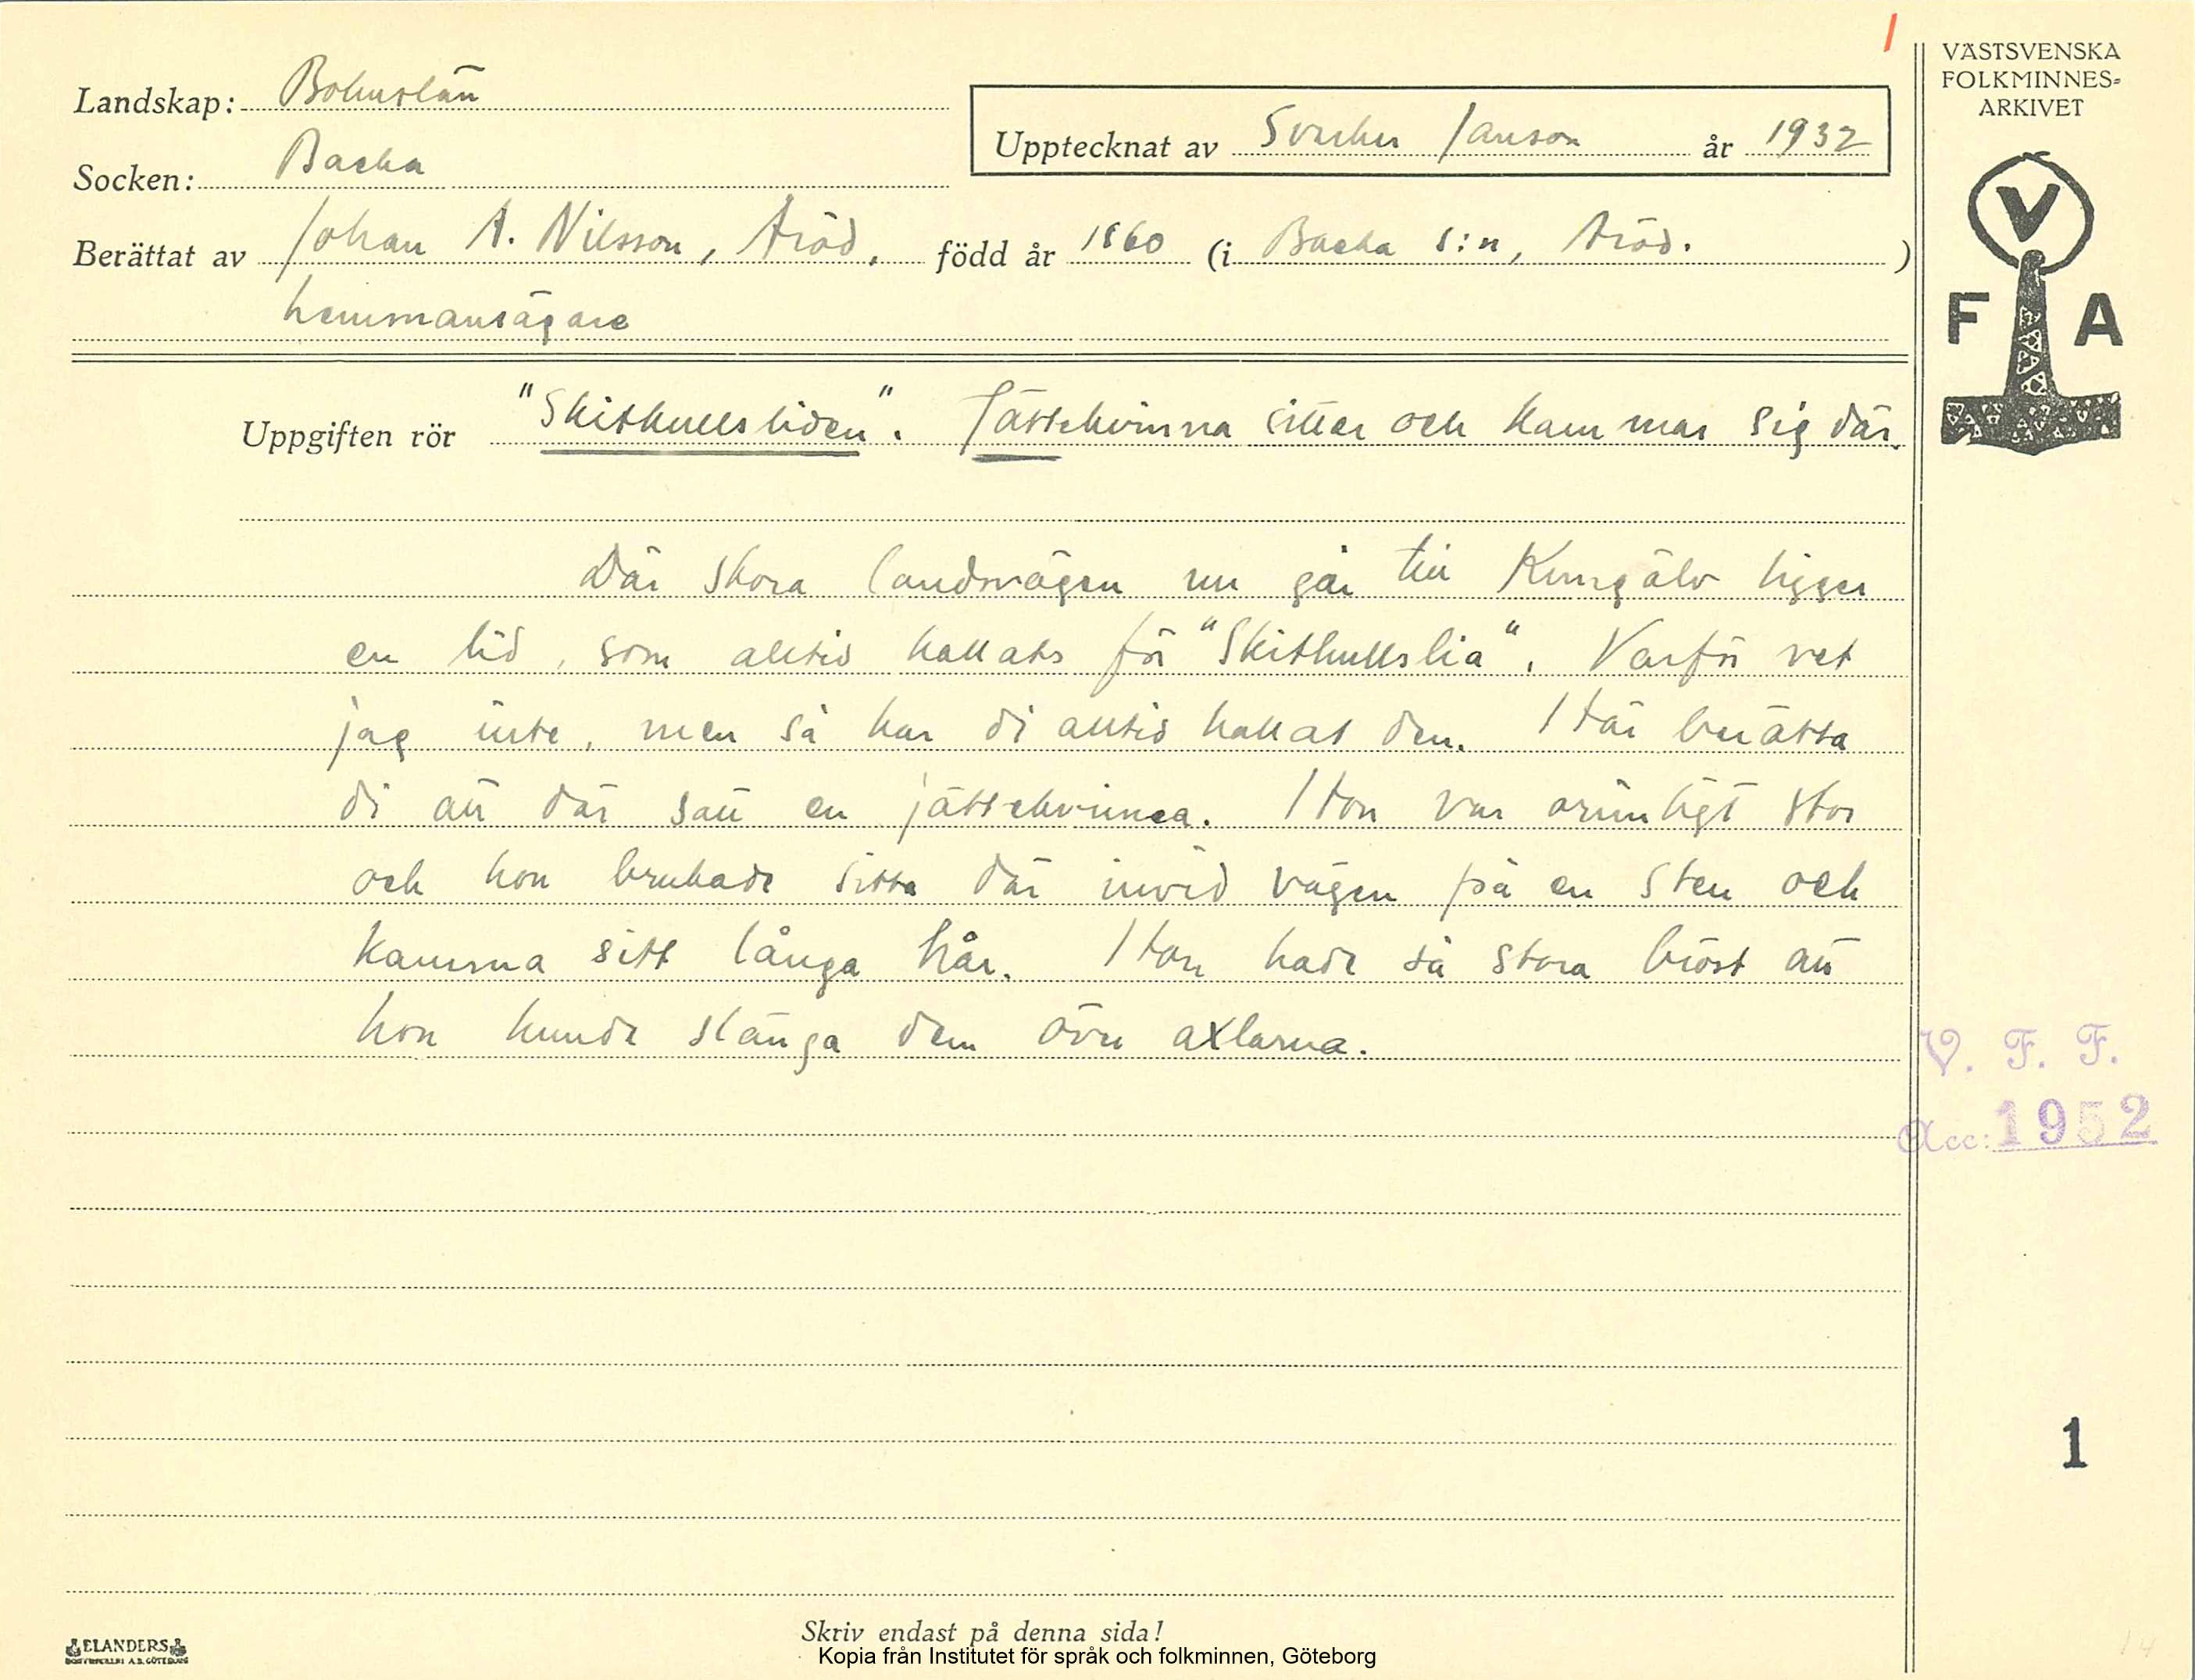 VÄSTSVENSKA
FOLKMINNES=
ARKIVET
Landskap: Bohuslän
Upptecknat av Sverker Janson år 1932
Socken: Backa
Berättat av Johan A. Nilsson, Aröd, född år 1860 (i Backa s:n, Aröd. )
hemmansägare
V
F A
Uppgiften rör "Skitkullsliden". Jättekvinna sitter och kammar sig där.
Där stora landsvägen nu går till Kungälv ligger
en lid, som alltid kallats för "Skitkullslia". Varför vet
jag inte, men så har di alltid kallat den. Här berätta
di att där satt en jättekvinna. Hon var orimligt stor
och hon brukade sitta där invid vägen på en sten och
kamma sitt långa hår. Hon hade så stora bröst att
hon kunde slänga dem över axlarna.
V. F. F.
Acc: 1952
1
Skriv endast på denna sida!
ELANDERS
Kopia från Institutet för språk och folkminnen, Göteborg